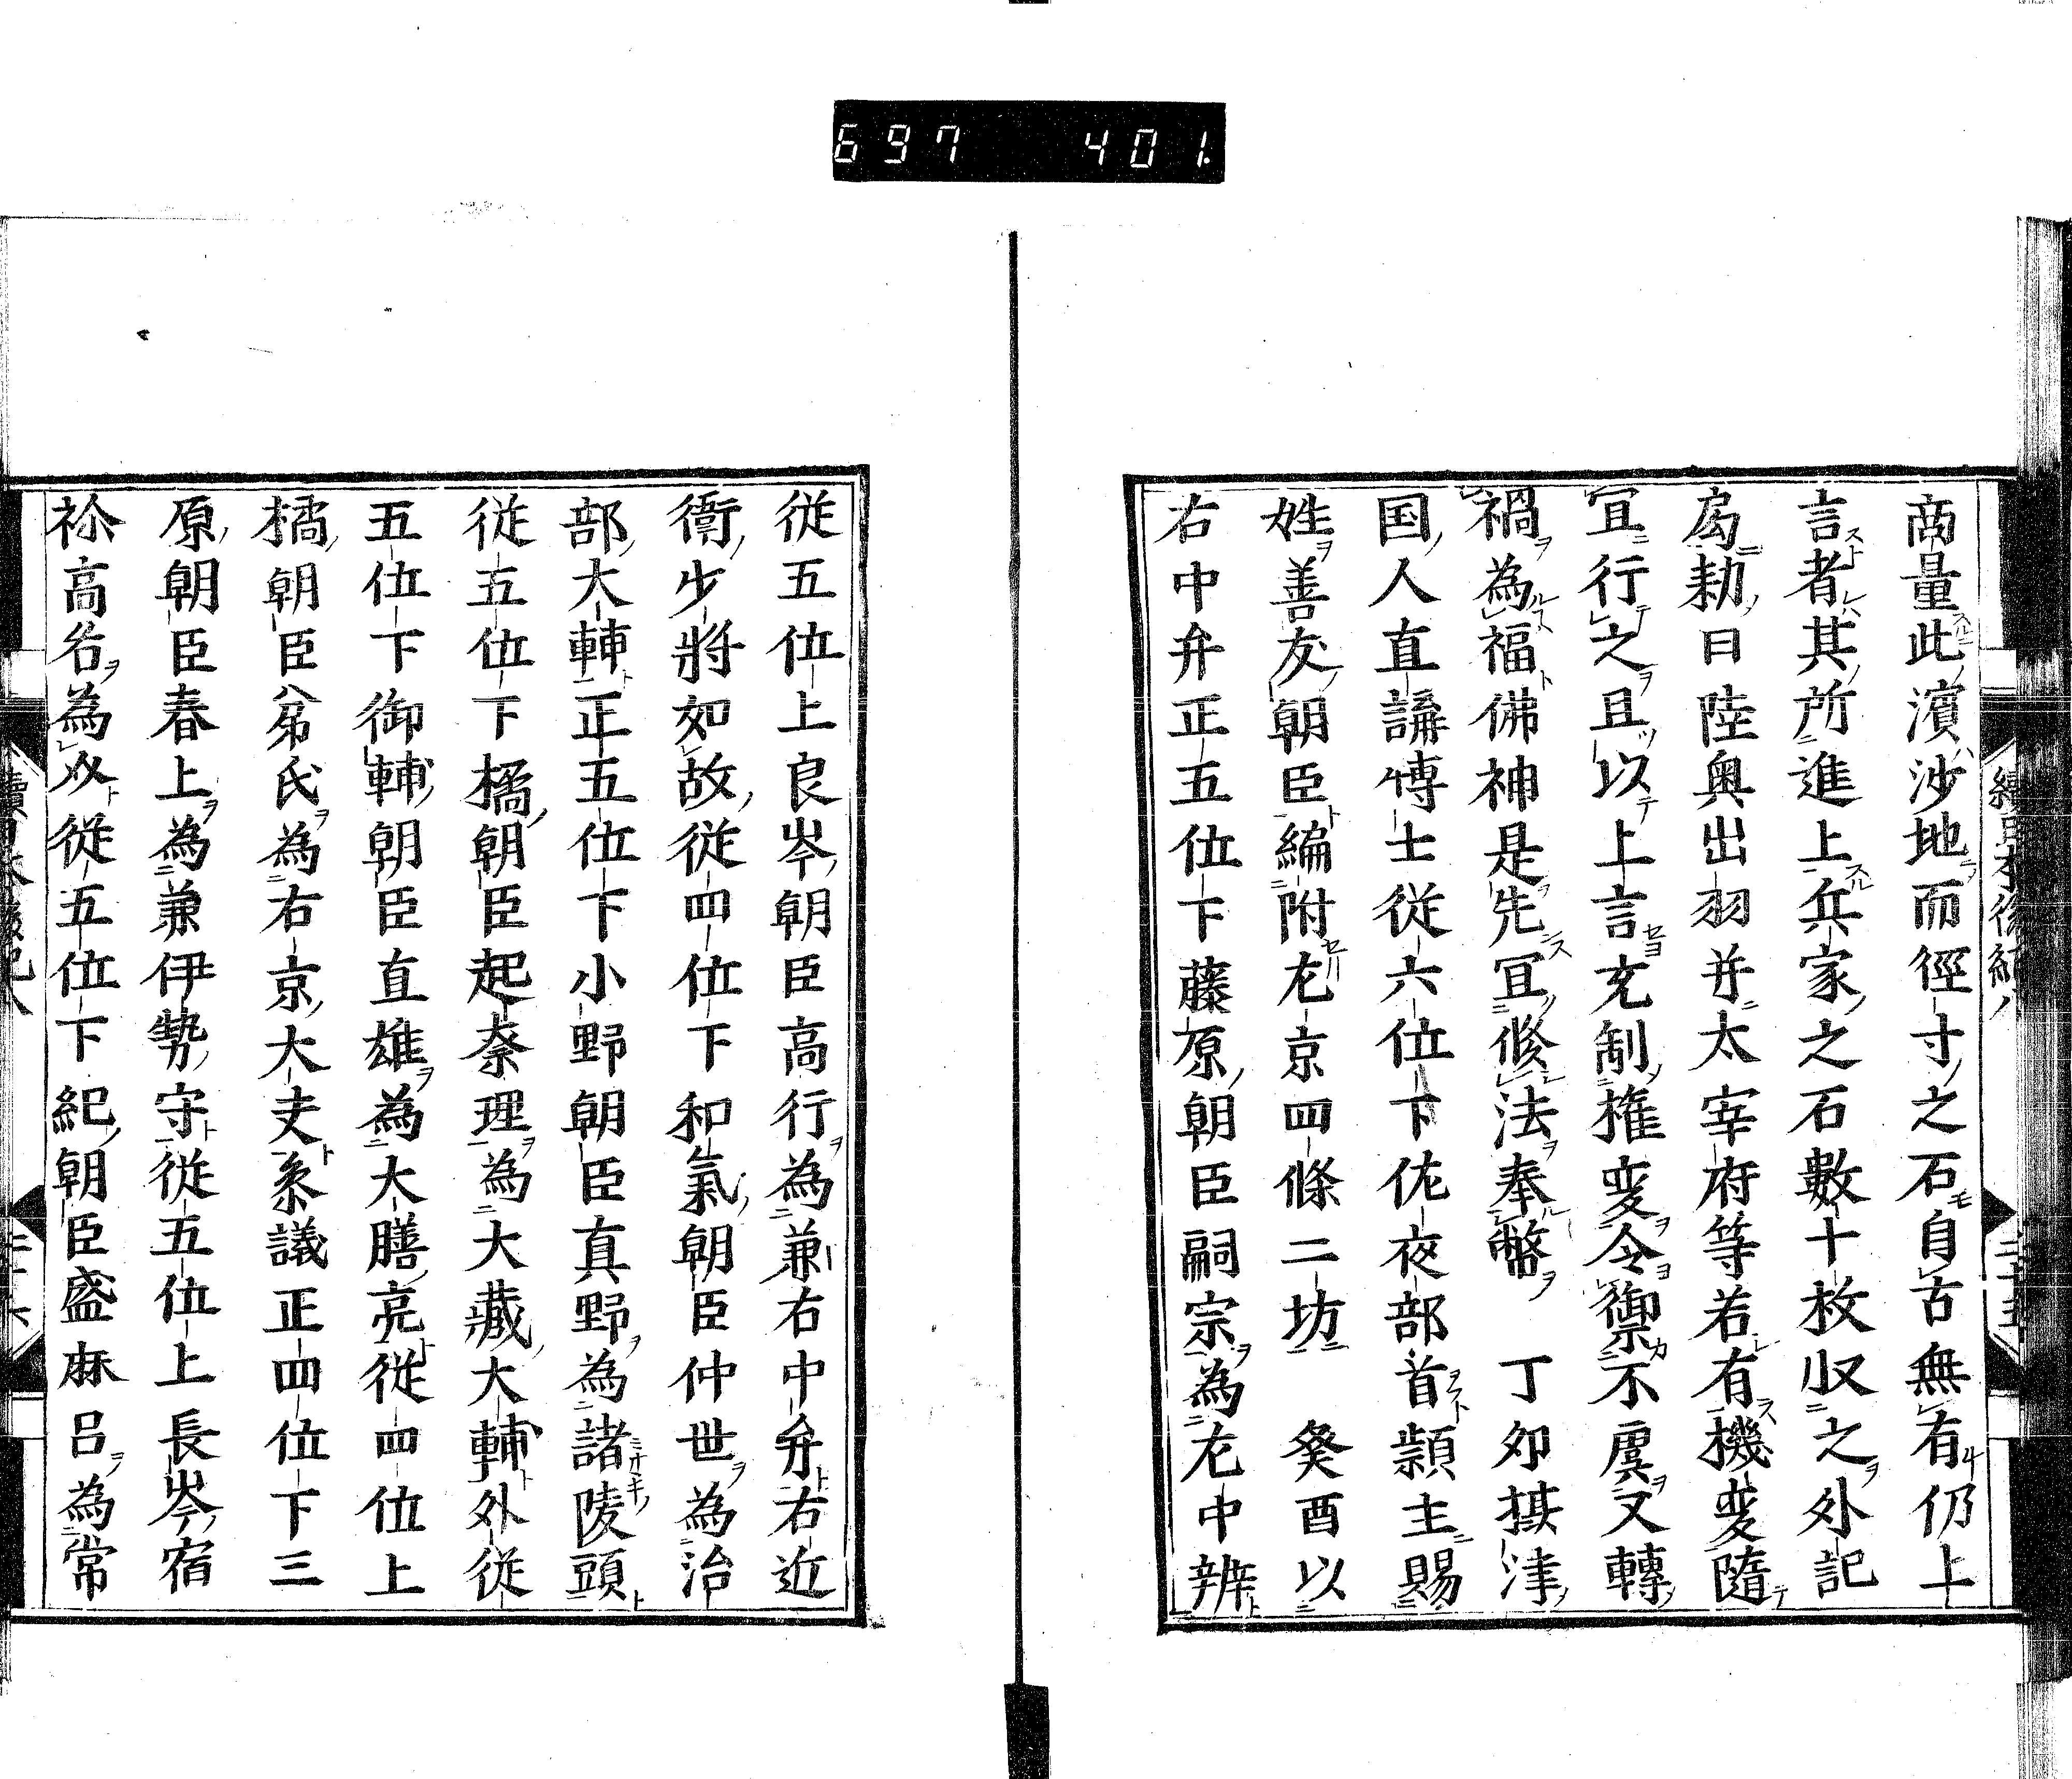 697 401.
商量此濱沙地而徑寸之石自古無有仍上
言者其所進上兵家之石數十枚収之外記
局勅曰陸奥出羽并太宰府等若有機変隨
冝行之且以上言充制権変令禦不虞又轉
禍為福佛神是先冝俢法奉幣 丁夘摂津
国人直講博士従六位下佐夜部首頴主賜
姓善友朝臣編附左京四條二坊 癸酉以
右中弁正五位下藤原朝臣嗣宗為左中辨
従五位上良岑朝臣高行為兼右中弁右近
衛少将如故従四位下和氣朝臣仲世為治
部大輔正五位下小野朝臣真野為諸陵頭
従五位下橘朝臣起奈理為大藏大輔外従
五位下御輔朝臣直雄為大膳亮従四位上
橘朝臣弟氏為右京大夫参議正四位下三
原朝臣春上為兼伊勢守従五位上長岑宿
祢高名為次従五位下紀朝臣盛麻呂為常